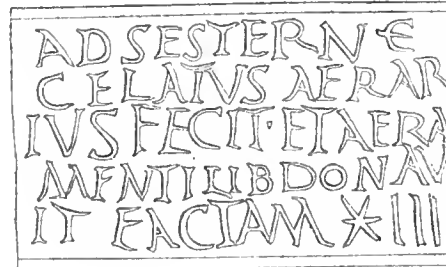 AD SESTERN €
CELATVS AERAR
IVS FECIT·ET AERA
MENTI LIB DONAV
IT FACTAM X III